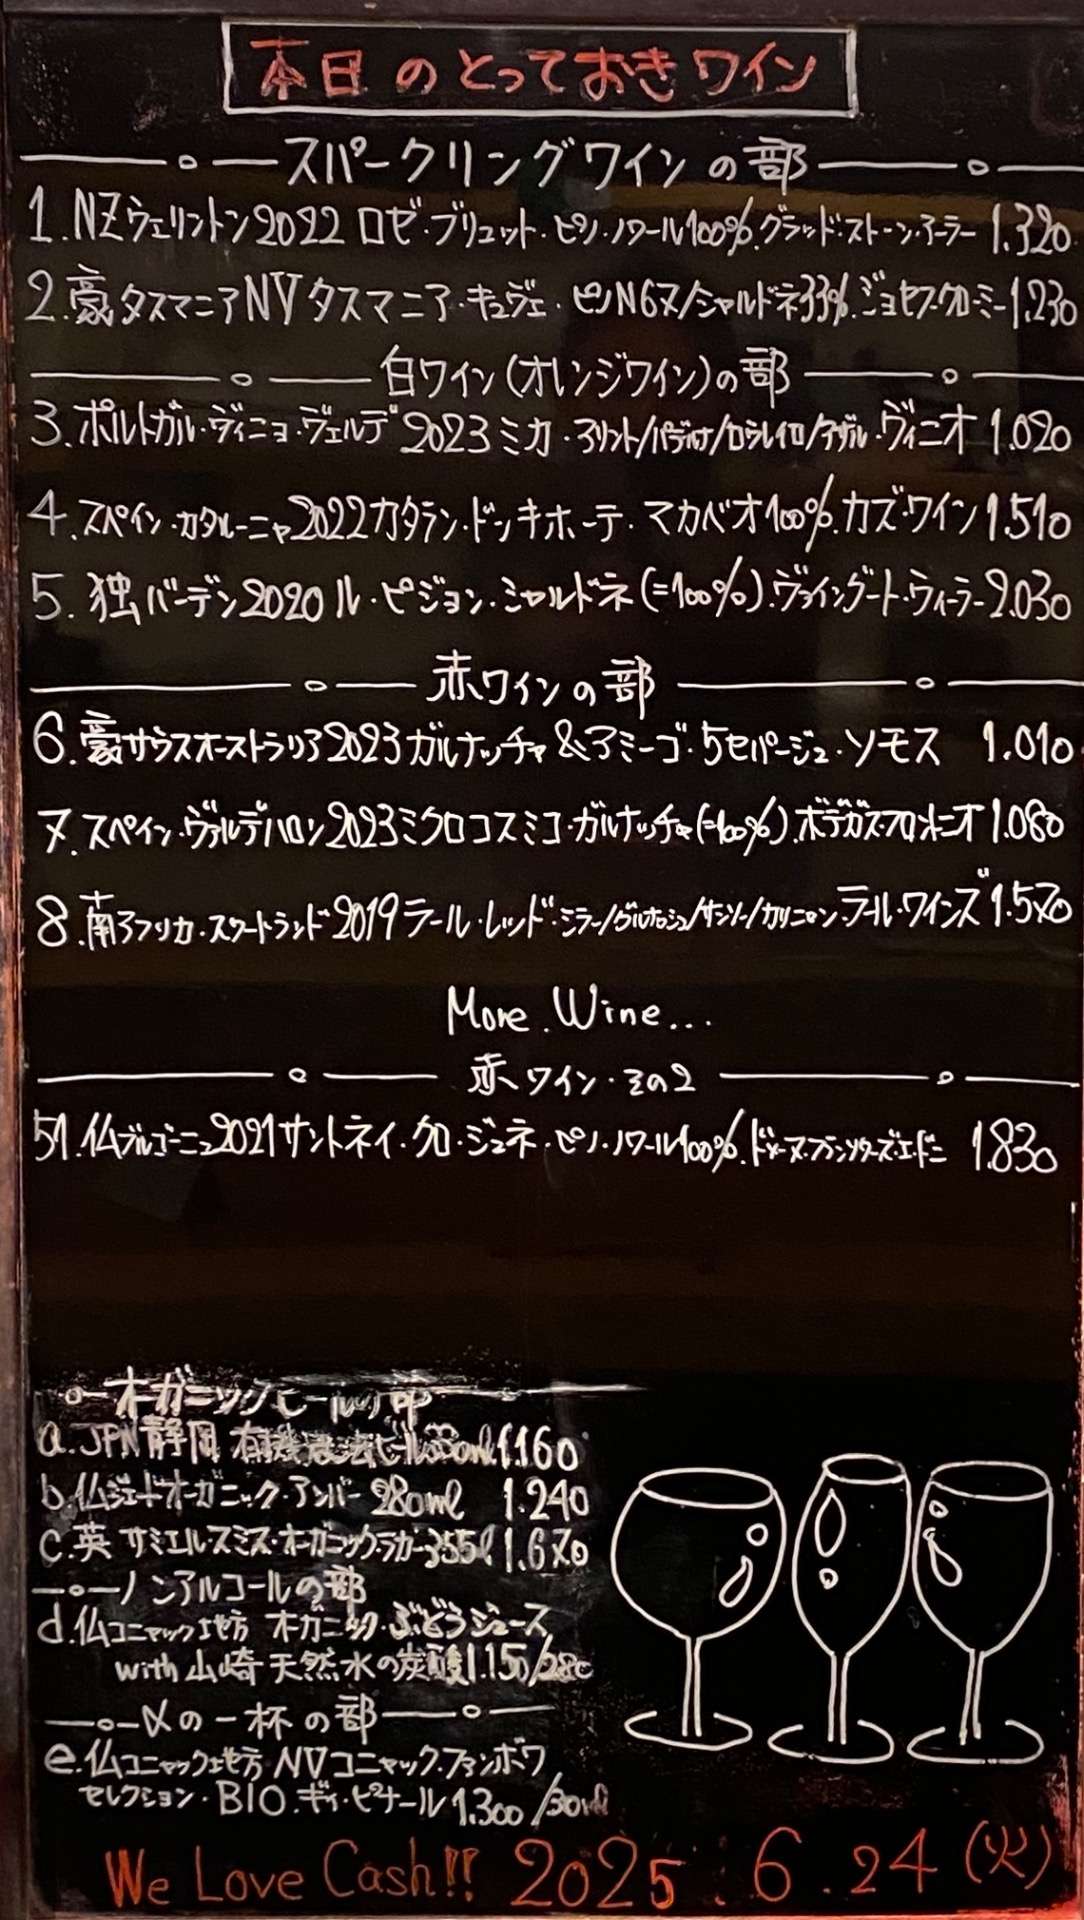 本日のとっておきワイン
スパークリングワインの部
1.NZウェリントン2022 ロゼ・ブリュット・ピノ・ノワール100%.グラッドストーン・アーラー 1.320
2.豪タスマニアNVタスマニア・キュヴェ・ピノN67/シャルドネ33%.ジョセフ・クロミー 1.230
白ワイン(オレンジワイン)の部
3.ポルトガル・ヴィニョ・ヴェルデ 2023 ミカ・アリント/パデルナ/ロウレイロ/アザル・ヴィニオ 1.020
4.スペイン・カタルーニャ2022カタラン・ドンキホーテ・マカベオ100%.カズ・ワイン 1.510
5.独バーデン2020ル・ピジョン・シャルドネ(=100%).ヴァイングート・ウィーラー 2.030
赤ワインの部
6.豪サウスオーストラリア2023ガルナッチャ&アミーゴ・5セパージュ・ソモス 1.010
7.スペイン・ヴァルデハロン2023ミクロコスミコ・ガルナッチャ(=100%).ボデガス・フロントニオ 1.080
8.南アフリカ・スワートランド2019テール・レッド・シラー/グルナッシュ/サンソー/カリニャン.テール・ワインズ 1.570
More.Wine...
赤ワイン・その2
51.仏ブルゴーニュ2021サントネイ・クロ・ジュネ・ピノ・ノワール100%.ドメーヌ・フランソワーズ・エ・ドニ 1.830
オーガニックビールの部
a.JPN静岡 有機農法ビール 1.160
b.仏ジェードオーガニック・アンバー 280ml 1.240
c.英 サミエルスミス・オーガニックラガー355l 1.670
ノンアルコールの部
d.仏コニャック地方 オーガニック・ぶどうジュース
with 山崎天然水の炭酸 1.150/280
〆の一杯の部
e.仏コニャック地方 NVコニャック.ファンボワ
セレクション・BIO.ギィ・ピナール 1.300/30ml
We Love Cash!! 2025.6.24(火)